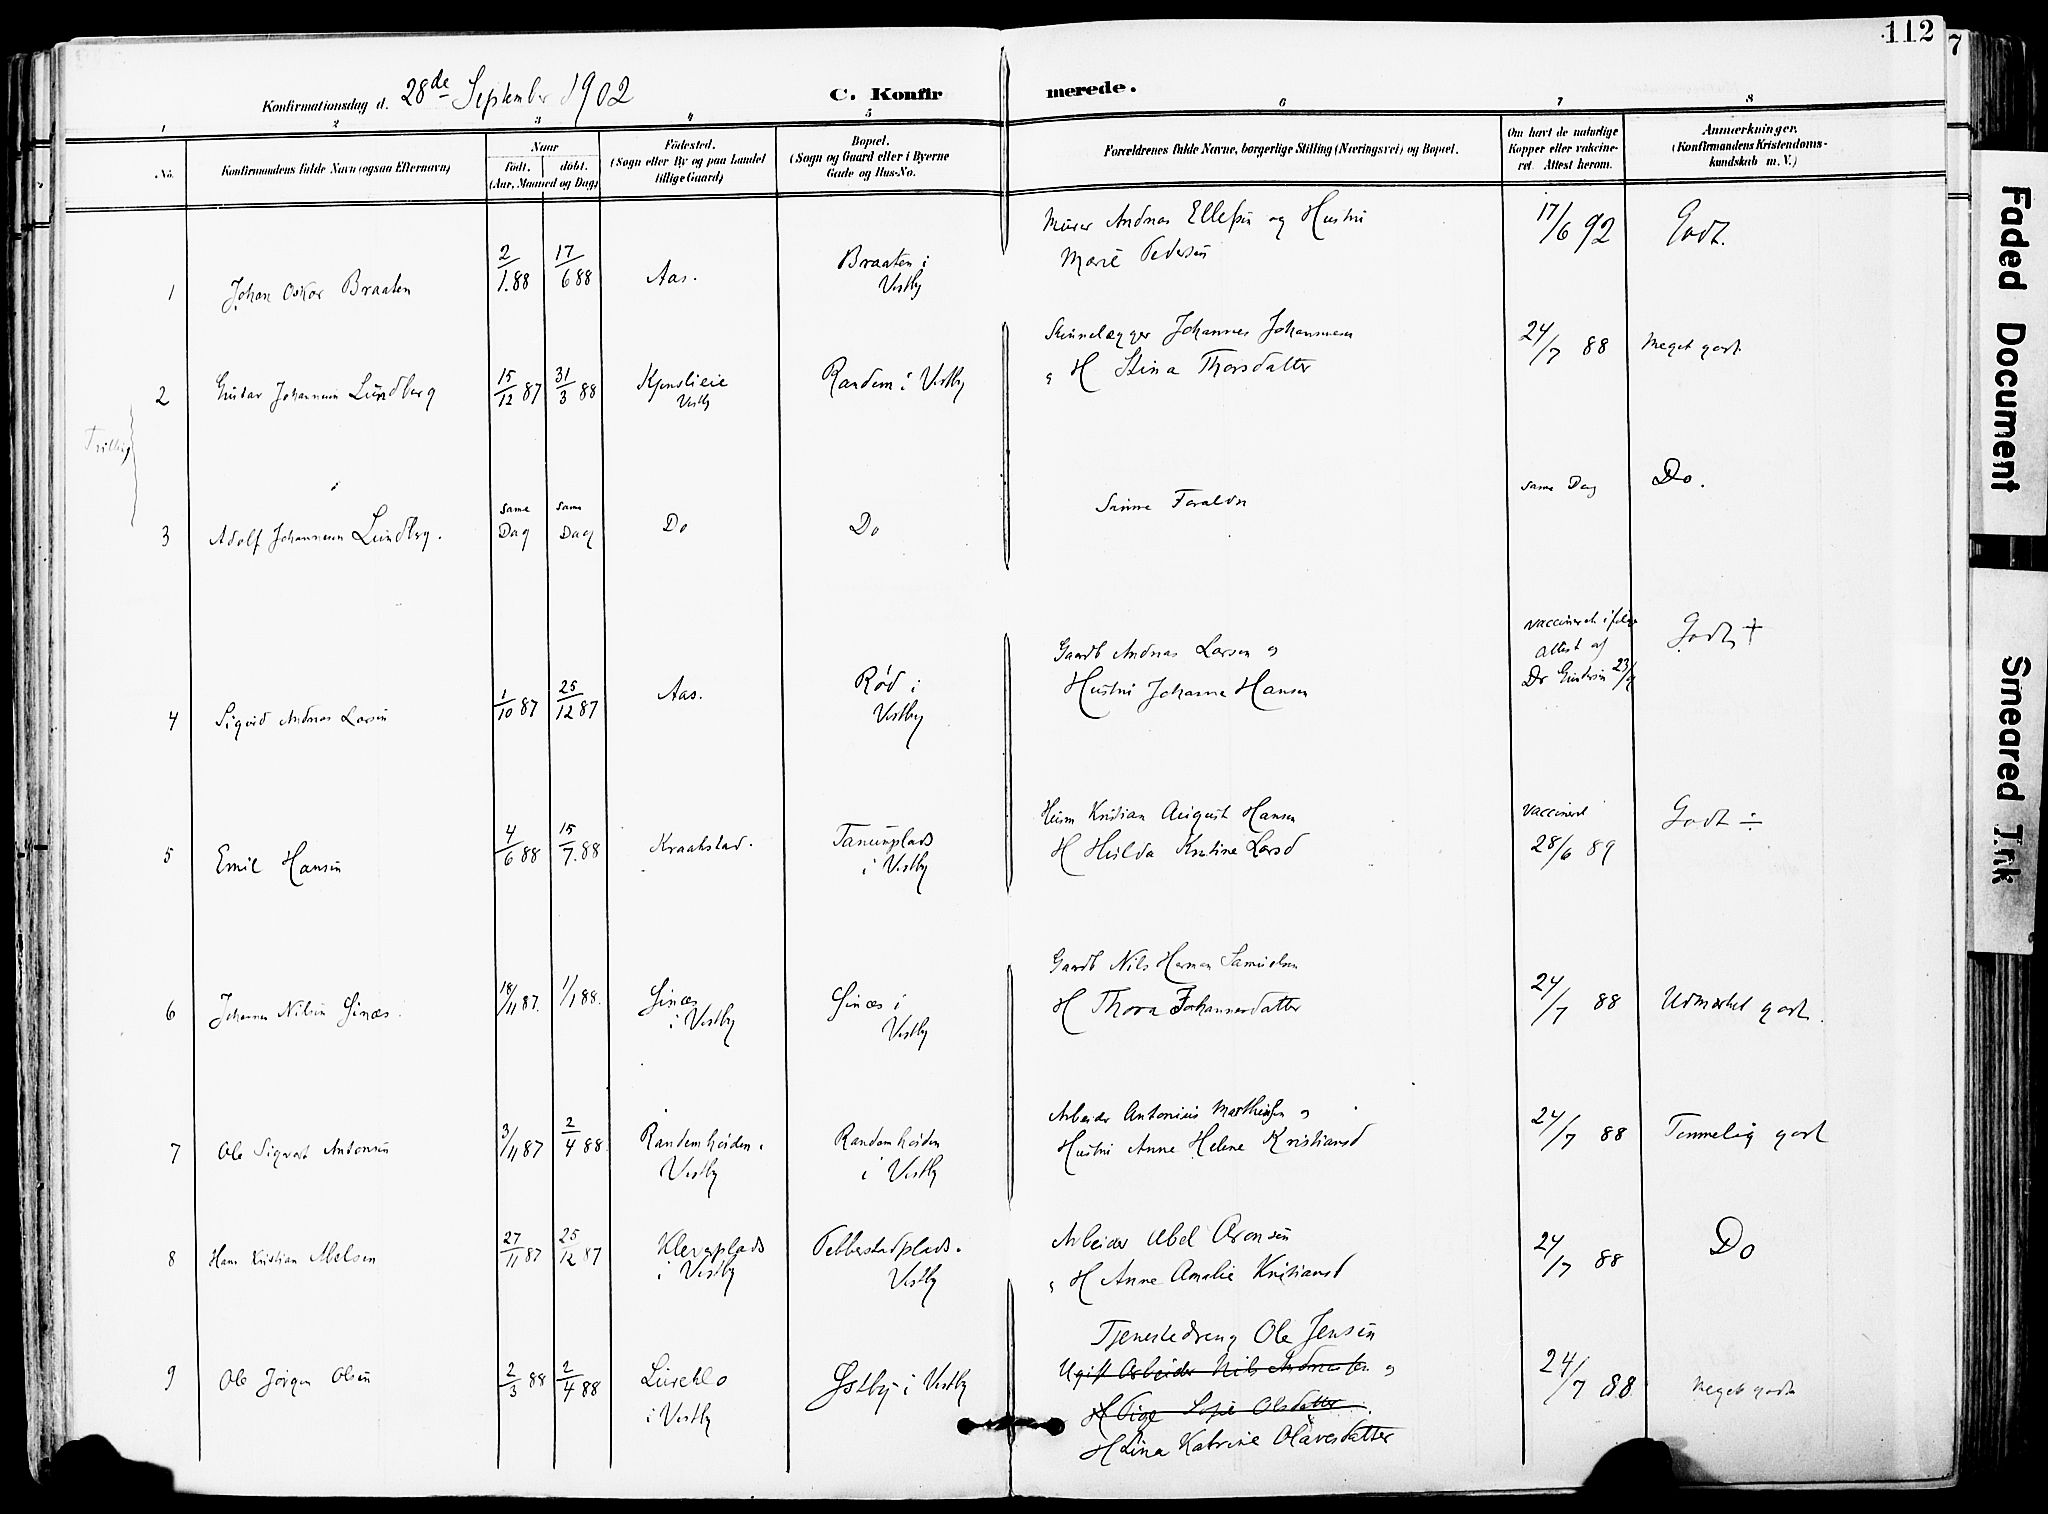 112
7
Konfirmationsdag d. 28de September 1902
C. Konfirmerede.
1 2 3 4 5 6 7 8
No.
Konfirmandens fulde Navn (ogsaa Efternavn)
Naar
født. døbt.
(Aar, Maaned og Dag)
Fødested.
(Sogn eller By og paa Landet
tillige Gaard)
Bopæl.
(Sogn og Gaard eller i Byerne
Gade og Hus-No.
Forældrenes fulde Navne, borgerlige Stilling (Næringsvei) og Bopæl.
Om havt de naturlige
Kopper eller vakcine-
ret. Attest herom.
Anmærkninger.
(Konfirmandens Kristendoms-
kundskab m. V.)
1 Johan Oskar Braaten
2/1.88 17/6 88
Aas.
Braaten i
Vestby
Murer Andreas Ellefsen og Hustru
Marie Pedersen
17/6 92
Godt.
Tvilling
2 Gustav Johannesen Lundberg
15/12 87 31/3 88
Vestby
Randem i Vestby
Johannes Johannesen
H Stina Thorsdatter
24/7 88
Meget godt.
3 Adolf Johannesen Lundberg.
same Dag same Dag
Do
Do
Samme Foraldre
same Dag
Do.
4 Sigurd Andreas Larsen
1/10 87 25/12 87
Aas.
Rød i
Vestby
Gaardb Andreas Larsen og
Hustru Johanne Hansen
vaccineret i følge
Attest af
Dr
Godt +
5 Emil Hansen
4/6 88 15/7.88
Kraakstad.
i Vestby
Husm Kristian August Hansen
H Hulda Kristine Larsd
vaccineret
28/6 89
Godt ÷
6 Johannes Nilsen
18/11 87. 1/1 88.
i Vestby
i
Vestby
Gaardb Nils Herman Samuelsen
H Thora Johannesdatter
24/7 88
Udmærket godt.
7 Ole Sigvart Antonsen
3/11 87 2/4 88.
Randemhøiden i
Vestby
Randemhøiden
i Vestby
Arbeider Antonius Mathisen og
Hustru Anne Helene Kristiansd
24/7 88
Temmelig godt
8 Hans Kristian Abelsen
27/11 87 25/12 87
Kleveplads
i Vestby
Pebberstadplads.
Vestby
Arbeider Abel Aronsen
og H Anne Amalie Kristiansd
24/7 88
Do
9 Ole Jørgen Olsen
2/3 88 2/4 88
i Vestby
Østby i Vestby
Tjenestedreng Ole Jensen
Ugift Arbeider Nils Andreasen og
H Pige Sofie Olsdatter
H Lina Katrine Olavesdatter
24/7 88
Meget godt
Faded Document
Smeared Ink